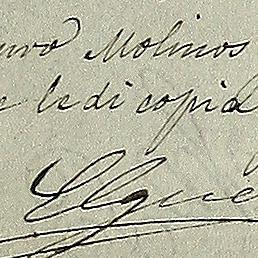 uro Molinos
e le di copia
Elgue